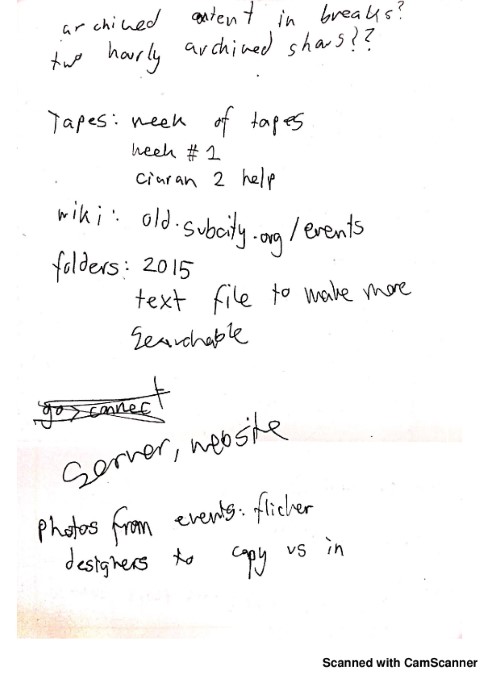 archived content in breaks?
two hourly archived shows??
Tapes: week of tapes
week #1
ciaran 2 help
wiki: old.subcity.org/events
folders: 2015
text file to make more
searchable
go > connect
Server, website
photos from events: flicker
designers to copy us in
Scanned with CamScanner